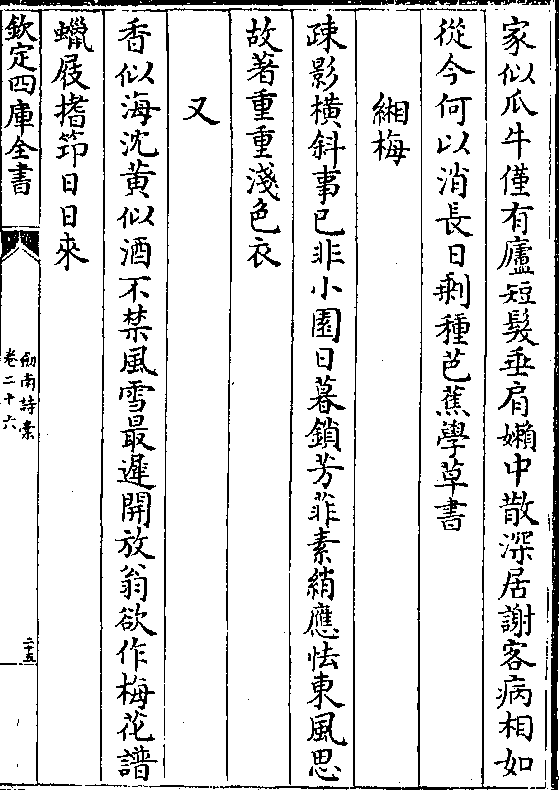 家似瓜牛僅有廬短髮垂肩嬾中散深居謝客病相如
從今何以消長日剰種芭蕉學草書
緗梅
疎影橫斜事已非小園日暮鎖芳菲素綃應怯東風思
故著重重淺色衣
又
香似海沈黄似酒不禁風雪最遲開放翁欲作梅花譜
蠟屐搘笻日日來
欽定四庫全書
劒南詩稾
卷二十六
二十五